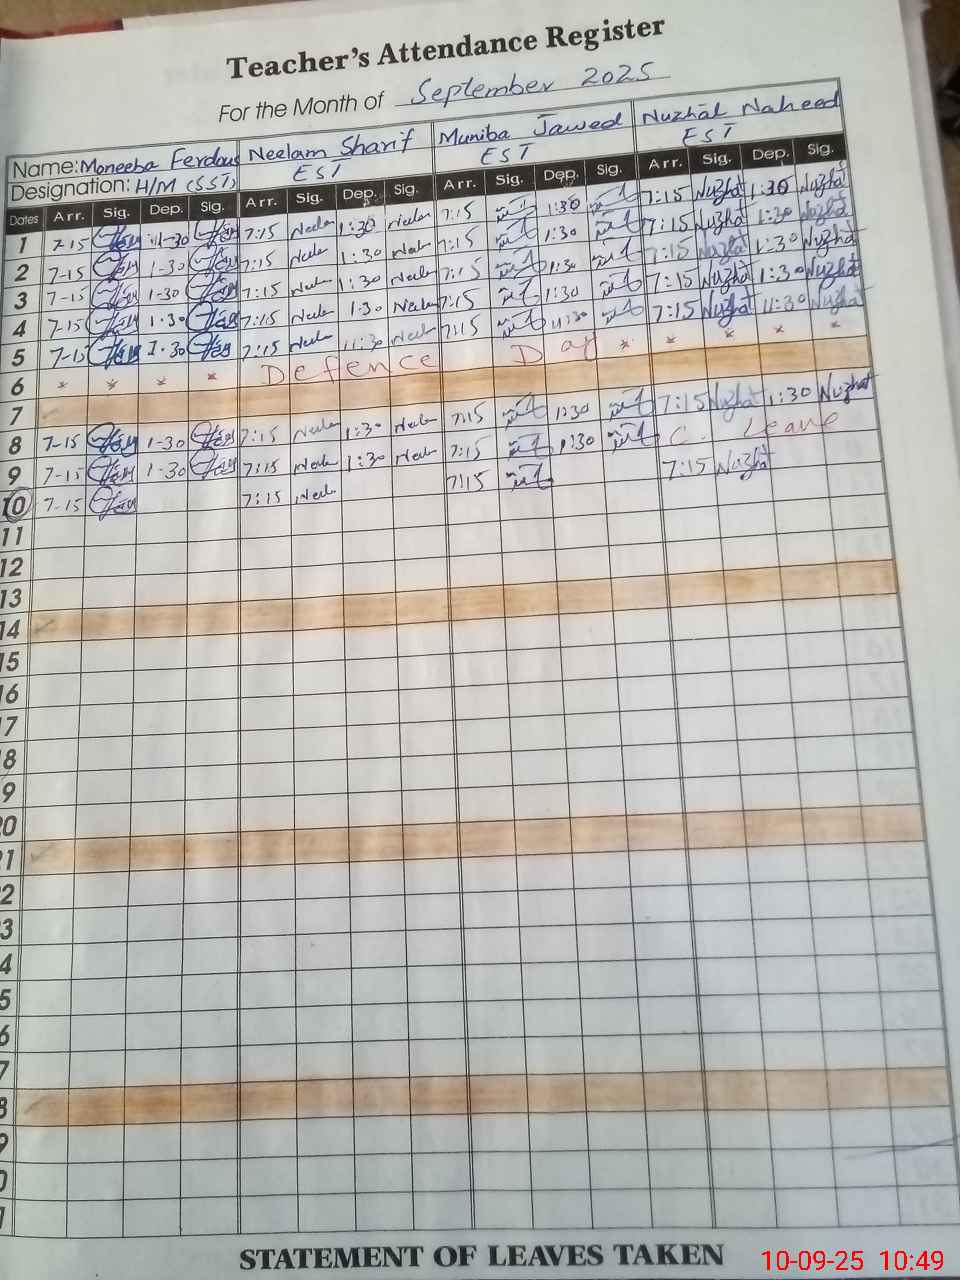 Teacher's Attendance Register
For the Month of September 2025
Name: Moneeba Ferdous Neelam Sharif Muniba Jawed Nuzhat Naheed
Designation: H/M (SST) EST EST EST
Dates Arr. Sig. Dep. Sig. Arr. Sig. Dep. Sig. Arr. Sig. Dep. Sig. Arr. Sig. Dep. Sig.
1 7-15 1-30 7:15 Neelam 1:30 Neelam 7:15 1:30 7:15 Nuzhat 1:30 Nuzhat
2 7-15 1-30 7:15 Neelam 1:30 Neelam 7:15 1:30 7:15 Nuzhat 1:30 Nuzhat
3 7-15 1-30 7:15 Neelam 1:30 Neelam 7:15 1:30 7:15 Nuzhat 1:30 Nuzhat
4 7-15 1-30 7:15 Neelam 1:30 Neelam 7:15 1:30 7:15 Nuzhat 1:30 Nuzhat
5 7-15 1-30 7:15 Neelam 11:30 Neelam 7:15 11:30 7:15 Nuzhat 11:30 Nuzhat
6 * * * * Defence Day * * * * *
7
8 7-15 1-30 7:15 Neelam 1:30 Neelam 7:15 1:30 7:15 Nuzhat 1:30 Nuzhat
9 7-15 1-30 7:15 Neelam 1:30 Neelam 7:15 1:30 C. Leave
10 7-15 7:15 Neelam 7:15 7:15 Nuzhat
11
12
13
14
15
16
17
18
9
20
21
2
3
4
5
6
7
8
9
0
1
STATEMENT OF LEAVES TAKEN
10-09-25 10:49